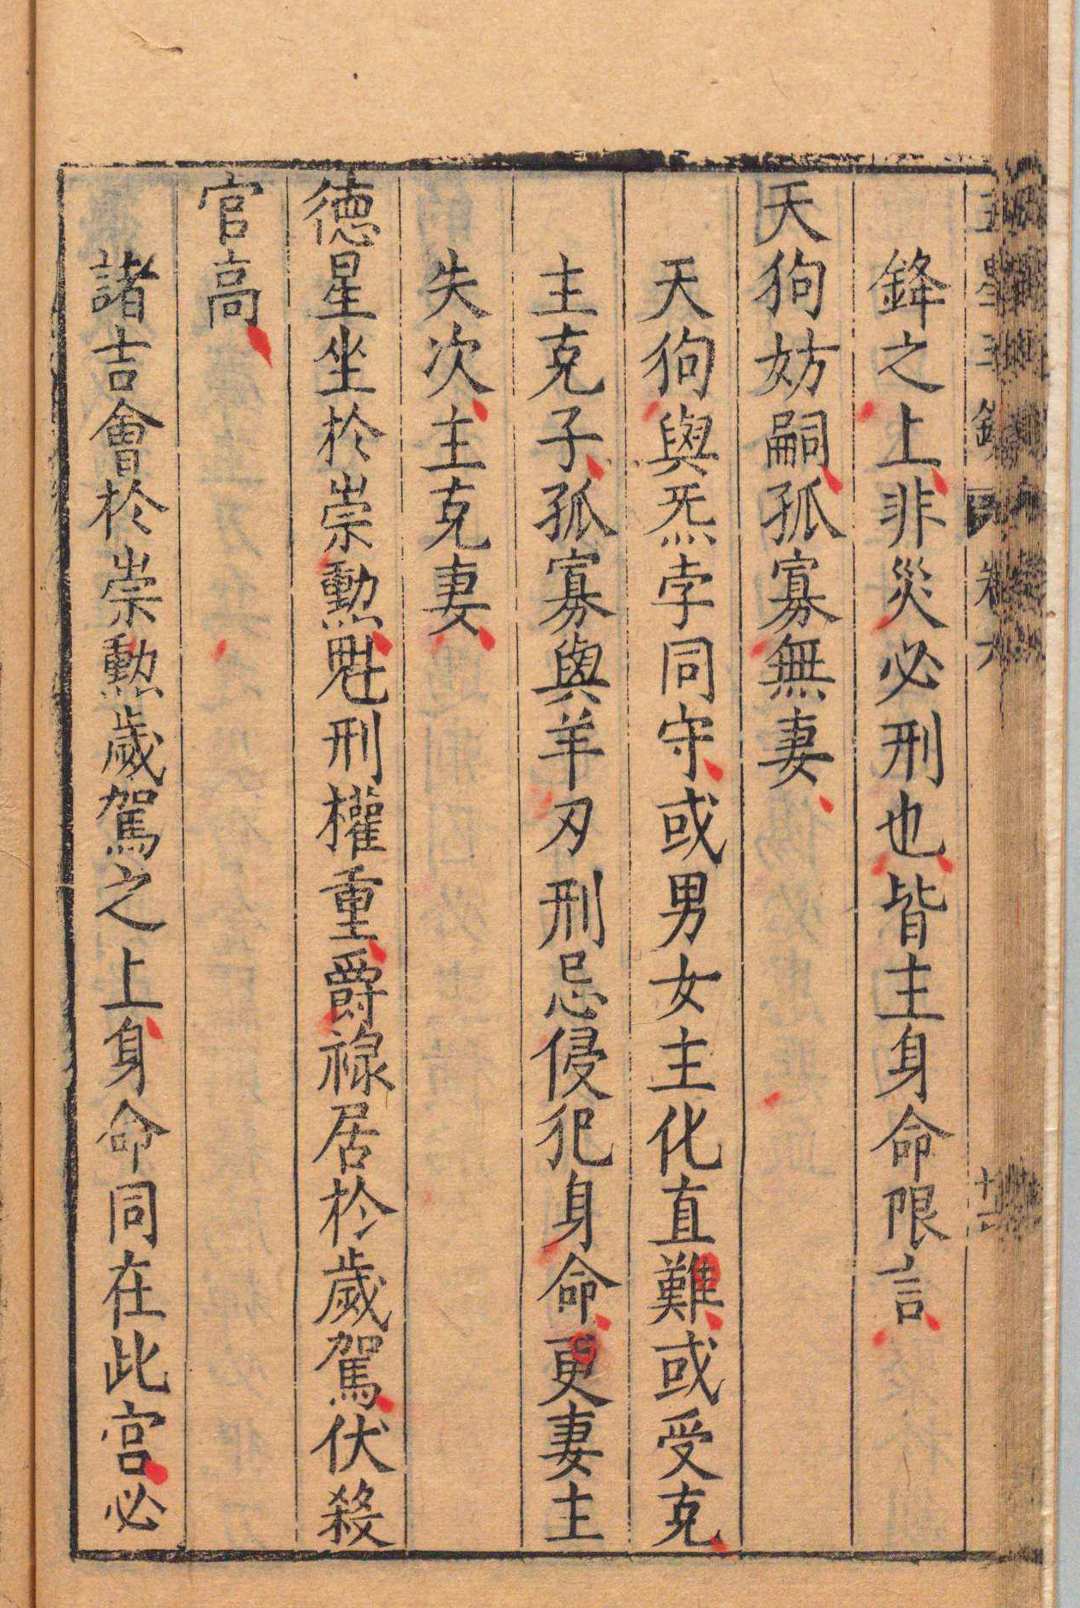 鋒之上非災必刑也皆主身命限言
天狗妨嗣孤寡無妻
天狗與炁孛同守或男女主化直難或受克
主克子孤寡與羊刃刑忌侵犯身命更妻主
失次主克妻
德星坐於崇勲魁刑權重爵祿居於歲駕伏殺
官高
諸吉會於崇勲歲駕之上身命同在此宮必